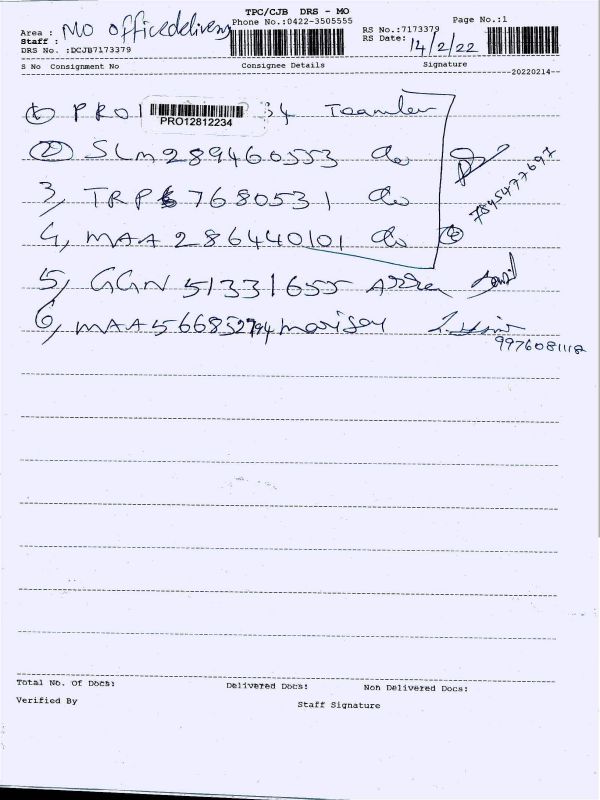 TPC/CJB DRS - MO
Phone No.:0422-3505555
Page No.:1
Area : MO office delivery
RS No.:7173379
Staff :
RS Date: 14/2/22
DRS No. :DCJB7173379
S No Consignment No Consignee Details Signature
20220214
1, PRO1 34 Teamlew
PRO12812234
2, SLM289460553 do
3, TRP 7680531 do
7845477697
4, MAA 286440101 do
5, GGN 51331655
6, MAA566852794
9976081118
Total No. Of Docs: Delivered Docs: Non Delivered Docs:
Verified By Staff Signature